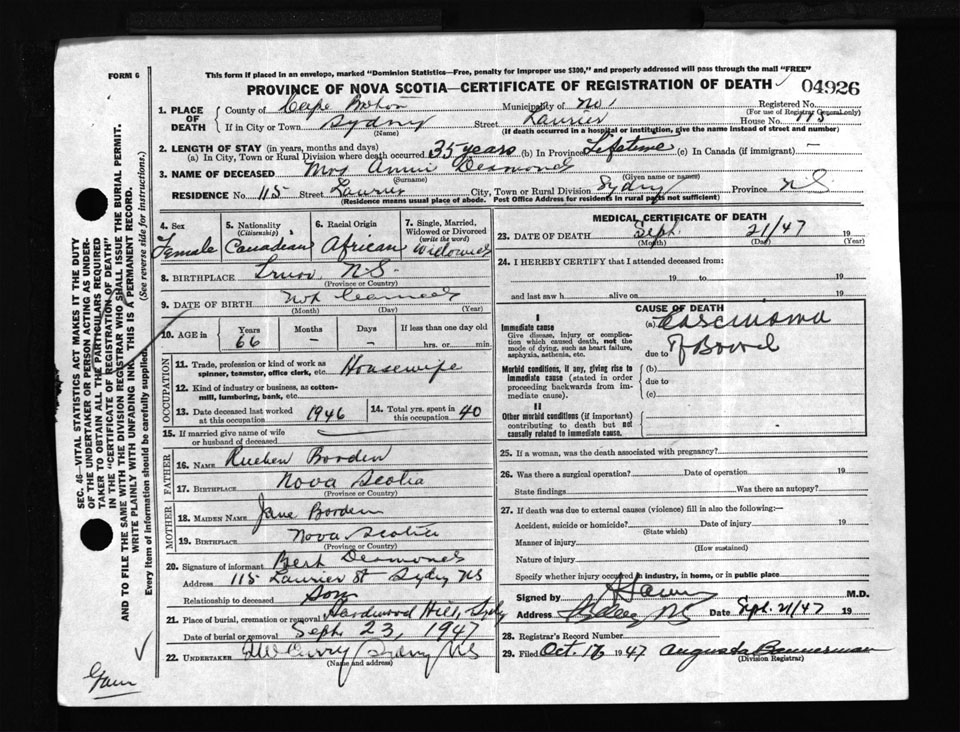 FORM 6
This form if placed in an envelope, marked "Dominion Statistics—Free, penalty for improper use $300," and properly addressed will pass through the mail "FREE"
PROVINCE OF NOVA SCOTIA—CERTIFICATE OF REGISTRATION OF DEATH
04926
SEC. 46—VITAL STATISTICS ACT MAKES IT THE DUTY
OF THE UNDERTAKER OR PERSON ACTING AS UNDER-
TAKER TO OBTAIN ALL THE PARTICULARS REQUIRED
IN THE "CERTIFICATE OF REGISTRATION OF DEATH"
AND TO FILE THE SAME WITH THE DIVISION REGISTRAR WHO SHALL ISSUE THE BURIAL PERMIT.
WRITE PLAINLY WITH UNFADING INK. THIS IS A PERMANENT RECORD.
Every item of information should be carefully supplied. (See reverse side for instructions.)
1. PLACE OF DEATH
County of Cape Breton Municipality of No 1 Registered No.
(For use of Registrar General only)
If in City or Town Sydney Street Laurier House No. 115
(Name) (If death occurred in a hospital or institution, give the name instead of street and number)
2. LENGTH OF STAY (in years, months and days)
(a) In City, Town or Rural Division where death occurred 35 years (b) In Province Lifetime (c) In Canada (if immigrant) —
3. NAME OF DECEASED Mrs Annie Desmond
(Surname) (Given name or names)
RESIDENCE No. 115 Street Laurier City, Town or Rural Division Sydney Province N.S.
(Residence means usual place of abode. Post Office Address for residents in rural parts not sufficient)
4. Sex
Female
5. Nationality
(Citizenship)
Canadian
6. Racial Origin
African
7. Single, Married,
Widowed or Divorced
(write the word)
Widowed
8. BIRTHPLACE Truro N.S.
(Province or Country)
9. DATE OF BIRTH Not learned
(Month) (Day) (Year)
10. AGE in Years Months Days If less than one day old
66 — — hrs. or min.
OCCUPATION
11. Trade, profession or kind of work as
spinner, teamster, office clerk, etc. Housewife
12. Kind of industry or business, as cotton-
mill, lumbering, bank, etc.
13. Date deceased last worked
at this occupation 1946
14. Total yrs. spent in
this occupation 40
15. If married give name of wife
or husband of deceased
FATHER
16. NAME Rueben Borden
17. BIRTHPLACE Nova Scotia
(Province or Country)
MOTHER
18. MAIDEN NAME Jane Borden
19. BIRTHPLACE Nova Scotia
(Province or Country)
20. Signature of informant Bert Desmond
Address 115 Laurier St Sydney NS
Relationship to deceased Son
21. Place of burial, cremation or removal Hardwood Hill, Sydney
Date of burial or removal Sept 23, 1947
22. UNDERTAKER Curry Sydney NS
(Name and address)
MEDICAL CERTIFICATE OF DEATH
23. DATE OF DEATH Sept. 21/47 19
(Month) (Day) (Year)
24. I HEREBY CERTIFY that I attended deceased from:
19 to 19
and last saw h alive on 19
CAUSE OF DEATH
I
Immediate cause
Give disease, injury or complica-
tion which caused death, not the
mode of dying, such as heart failure,
asphyxia, asthenia, etc.
(a) Carcinoma
due to of Bowel
Morbid conditions, if any, giving rise to
immediate cause (stated in order
proceeding backwards from im-
mediate cause).
(b)
due to
(c)
II
Other morbid conditions (if important)
contributing to death but not
causally related to immediate cause.
25. If a woman, was the death associated with pregnancy?
26. Was there a surgical operation? Date of operation 19
State findings Was there an autopsy?
27. If death was due to external causes (violence) fill in also the following:—
Accident, suicide or homicide? Date of injury 19
(State which)
Manner of injury
(How sustained)
Nature of injury
Specify whether injury occurred in industry, in home, or in public place
Signed by M.D.
Address Sydney NS Date Sept. 21/47 19
28. Registrar's Record Number
29. Filed Oct. 17 1947 Augusta Bannerman
(Division Registrar)